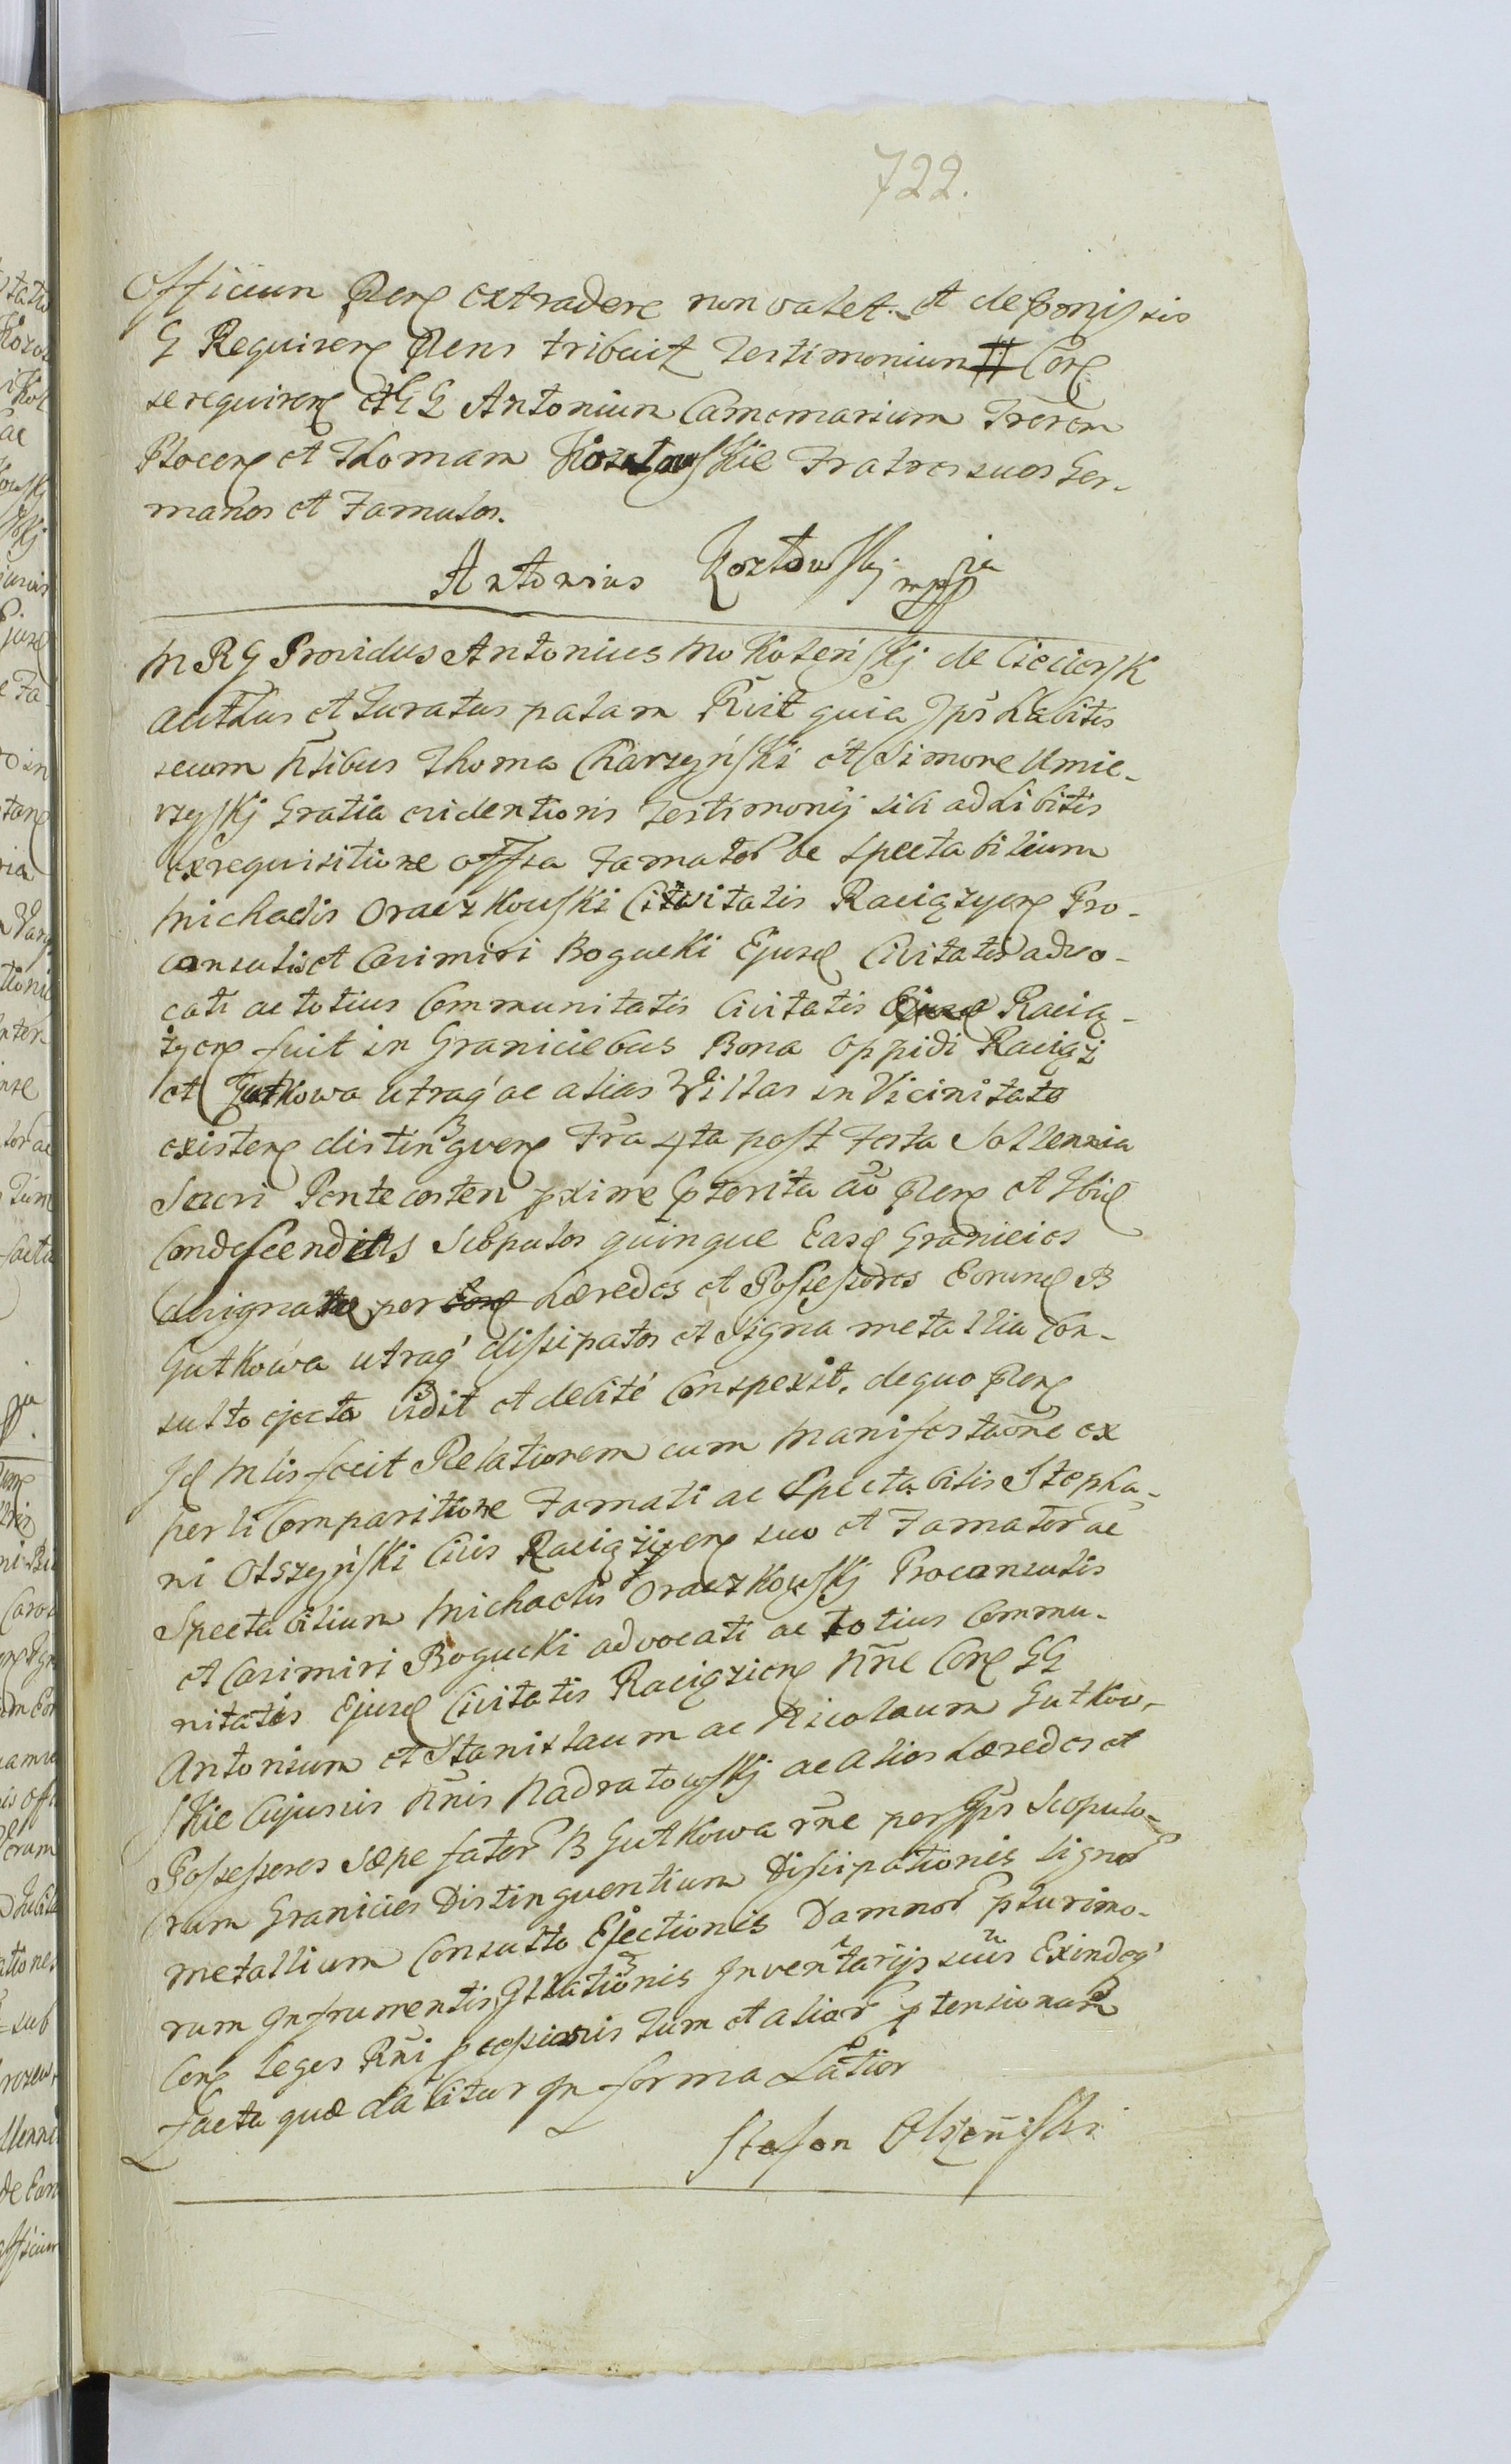 722.
Officium Pleñ extradere non valet. et de praemissis
G Requireñ Pleñs tribuit Testimonium Coñ
se requireñ et GG Antonium Camerarium Trrem
Ploceñ et Thomam Kozłowskie Fratres suos Ger-
manos et Famulos.
Antonius Kozłowskj mpp
M RG Providus Antonius Mokoleńskj de Ciecierſk
authus et Juratus palam Ruit quia Ips habitis
secum ñlibus Thoma Charzyński et Simone Umie-
rzyſkj Gratia evidentioris Testimonij sibi adhibitis
ex requisitione offsa Famator ac Spectabilium
Michaelis Oraczkowſki Civitatis Raciązyeñ Pro-
consulis et Casimiri Bogucki Ejusd Civitatis advo-
cati ac totius Communitatis Civitatis Racią-
zyeñ fuit in Graniciebus Bona Oppidi Raciąż
et Gutkowa utraq ac alias Villas in Vicinitate
existeñ distingveñ Fra 4ta post Festa Sollennia
Sacri Pentecosten pxime pterita ao Pleñ et Ibid
Condescendens Scopulos quinque Easd Granicies
designañ per Hæredes et Possessores Eorund B
Gutkowa utraq dissipatos et Signa metallia Con-
sulto ejecta vidit et debite Conspexit. de quo Pleñ
Id Mlis fecit Relationem cum Manifestaoñe ex
perli Comparitione Famati ac Spectabilis Stepha-
ni Olszyński Civis Raciążyeñ suo et Famator ac
Spectabilium Michaelis Oraczkowſkj Proconsulis
et Casimiri Bogucki advocati ac totius Commu-
nitatis Ejusd Civitatis Raciązieñ nñe Coñ GG
Antonium et Stanislaum ac Nicolaum Gutkow-
ſkie Cujusvis nñis Nadratowſkj ac alios Hæredes et
Possessores Sæpe fator B Gutkowa rñe per Ipsos Scopulo-
rum Granicies Distinguentium Dissipationis Signor
metallium Consulto Ejectionis Damnor plurimo-
rum In frumentis Illationis Inventarijs suis Exindeq
Coñ Leges Rñi tum et alior ptensionum
facta quæ dabitur In forma Latior
Stefan Olszeński